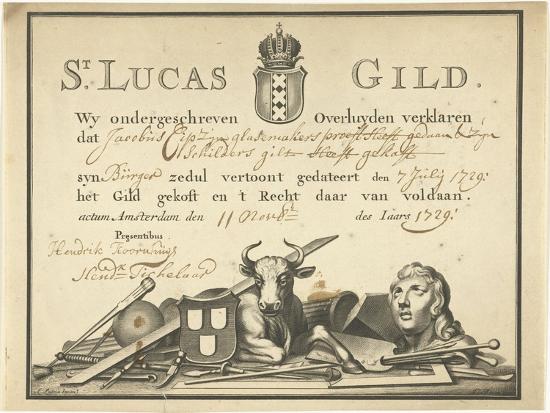 St. LUCAS GILD.
Wy ondergeschreven Overluyden verklaren
dat Jacobus zijn glasemakers proeft Heeft gedaan & zijn
Schilders gilt Heeft gekoft
syn Burger zedul vertoont gedateert den 7 July 1729.
het Gild gekoft en 't Recht daar van voldaan.
actum Amsterdam den 11 Novbr des Iaars 1729.
Præsentibus
Hendrik
Hendk Tichelaar